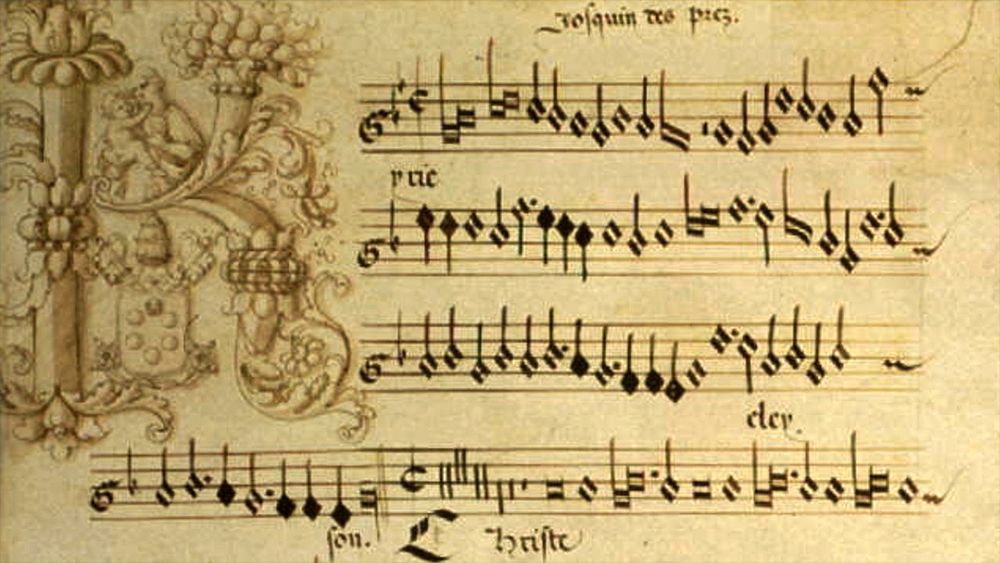 Josquin des prez.
K
yrie
eley.
son. Christe